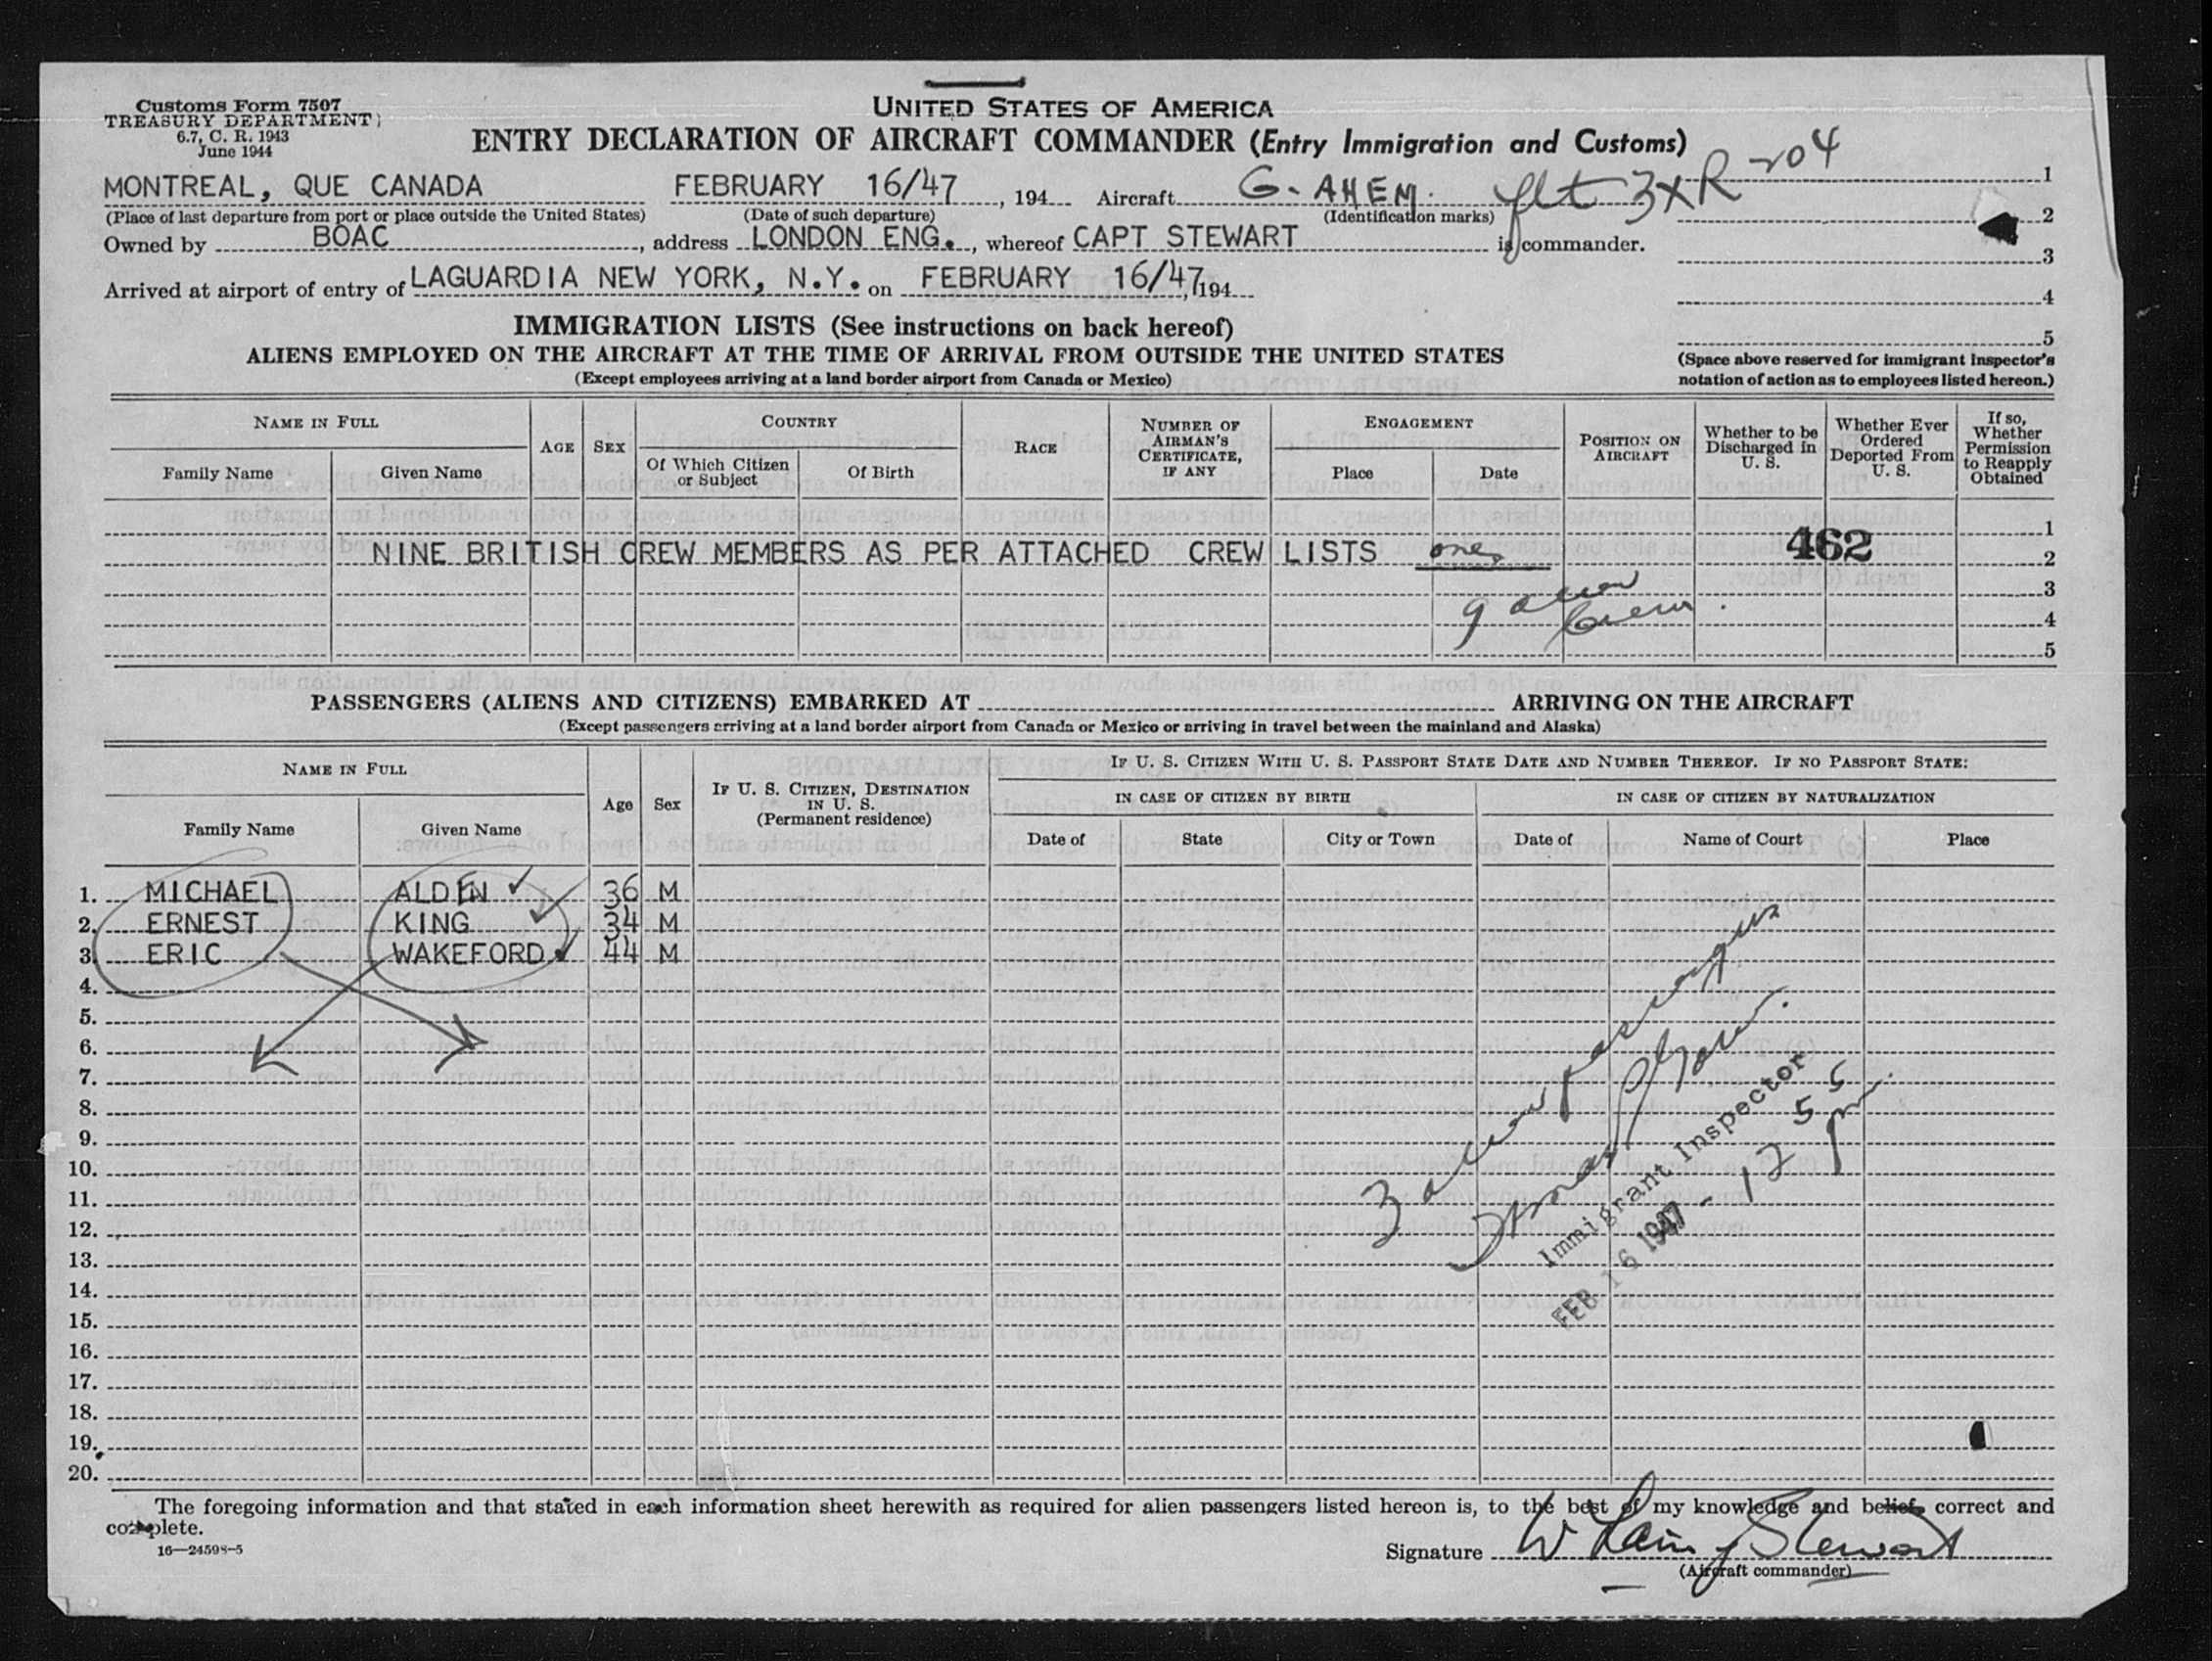 Customs Form 7507
TREASURY DEPARTMENT
6.7, C. R. 1943
June 1944
UNITED STATES OF AMERICA
ENTRY DECLARATION OF AIRCRAFT COMMANDER (Entry Immigration and Customs)
MONTREAL, QUE CANADA FEBRUARY 16/47, 194 Aircraft G-AHEM. flt 3XR204 1
(Place of last departure from port or place outside the United States) (Date of such departure) (Identification marks) 2
Owned by BOAC, address LONDON ENG., whereof CAPT STEWART is commander.
3
Arrived at airport of entry of LAGUARDIA NEW YORK, N.Y. on FEBRUARY 16/47, 194
4
IMMIGRATION LISTS (See instructions on back hereof)
5
ALIENS EMPLOYED ON THE AIRCRAFT AT THE TIME OF ARRIVAL FROM OUTSIDE THE UNITED STATES
(Except employees arriving at a land border airport from Canada or Mexico)
(Space above reserved for immigrant inspector's
notation of action as to employees listed hereon.)
NAME IN FULL
Family Name
Given Name
AGE
SEX
COUNTRY
Of Which Citizen
or Subject
Of Birth
RACE
NUMBER OF
AIRMAN'S
CERTIFICATE,
IF ANY
ENGAGEMENT
Place
Date
POSITION ON
AIRCRAFT
Whether to be
Discharged in
U. S.
Whether Ever
Ordered
Deported From
U. S.
If so,
Whether
Permission
to Reapply
Obtained
1
NINE BRITISH CREW MEMBERS AS PER ATTACHED CREW LISTS 462 2
3
9 alien
crew. 4
5
PASSENGERS (ALIENS AND CITIZENS) EMBARKED AT ARRIVING ON THE AIRCRAFT
(Except passengers arriving at a land border airport from Canada or Mexico or arriving in travel between the mainland and Alaska)
NAME IN FULL
Family Name
Given Name
Age
Sex
IF U. S. CITIZEN, DESTINATION
IN U. S.
(Permanent residence)
IF U. S. CITIZEN WITH U. S. PASSPORT STATE DATE AND NUMBER THEREOF. IF NO PASSPORT STATE:
IN CASE OF CITIZEN BY BIRTH
Date of
State
City or Town
IN CASE OF CITIZEN BY NATURALIZATION
Date of
Name of Court
Place
1. MICHAEL ALDEN 36 M
2. ERNEST KING 34 M
3. ERIC WAKEFORD 44 M
4.
5.
6.
7.
8.
9.
10.
11.
12.
13.
14.
15.
16.
17.
18.
19.
20.
3 alien passengers
Immigrant Inspector
FEB 16 1947 - 12 55 pm.
The foregoing information and that stated in each information sheet herewith as required for alien passengers listed hereon is, to the best of my knowledge and belief, correct and
complete.
16—24598-5
Signature W Lain Stewart
(Aircraft commander)